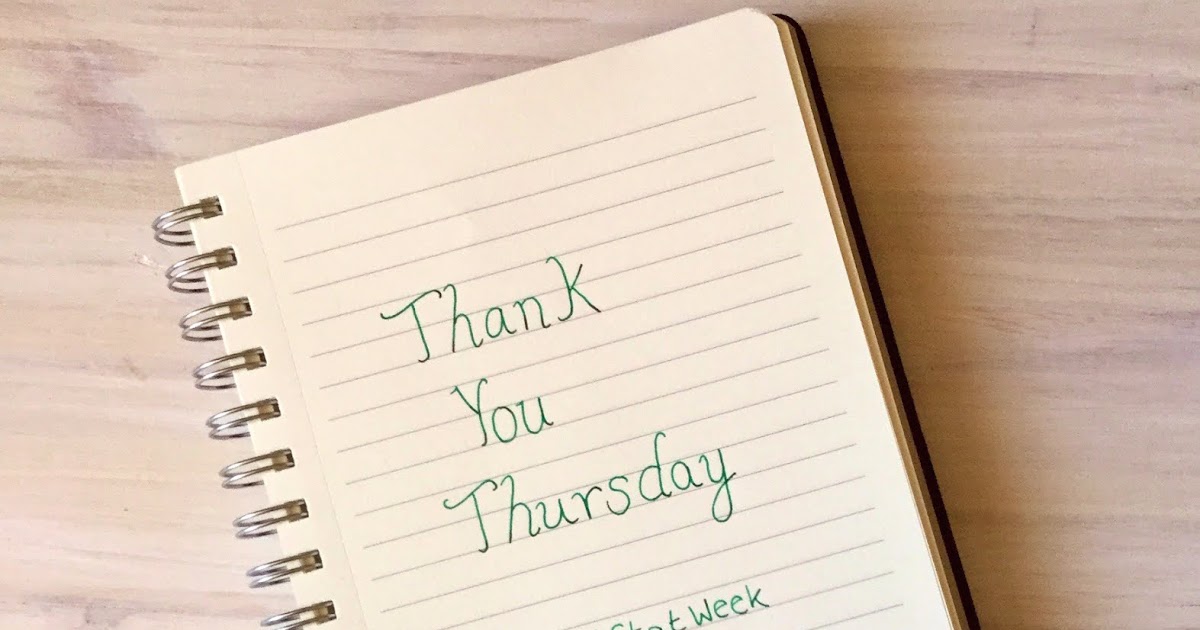 Thank
You
Thursday
Week